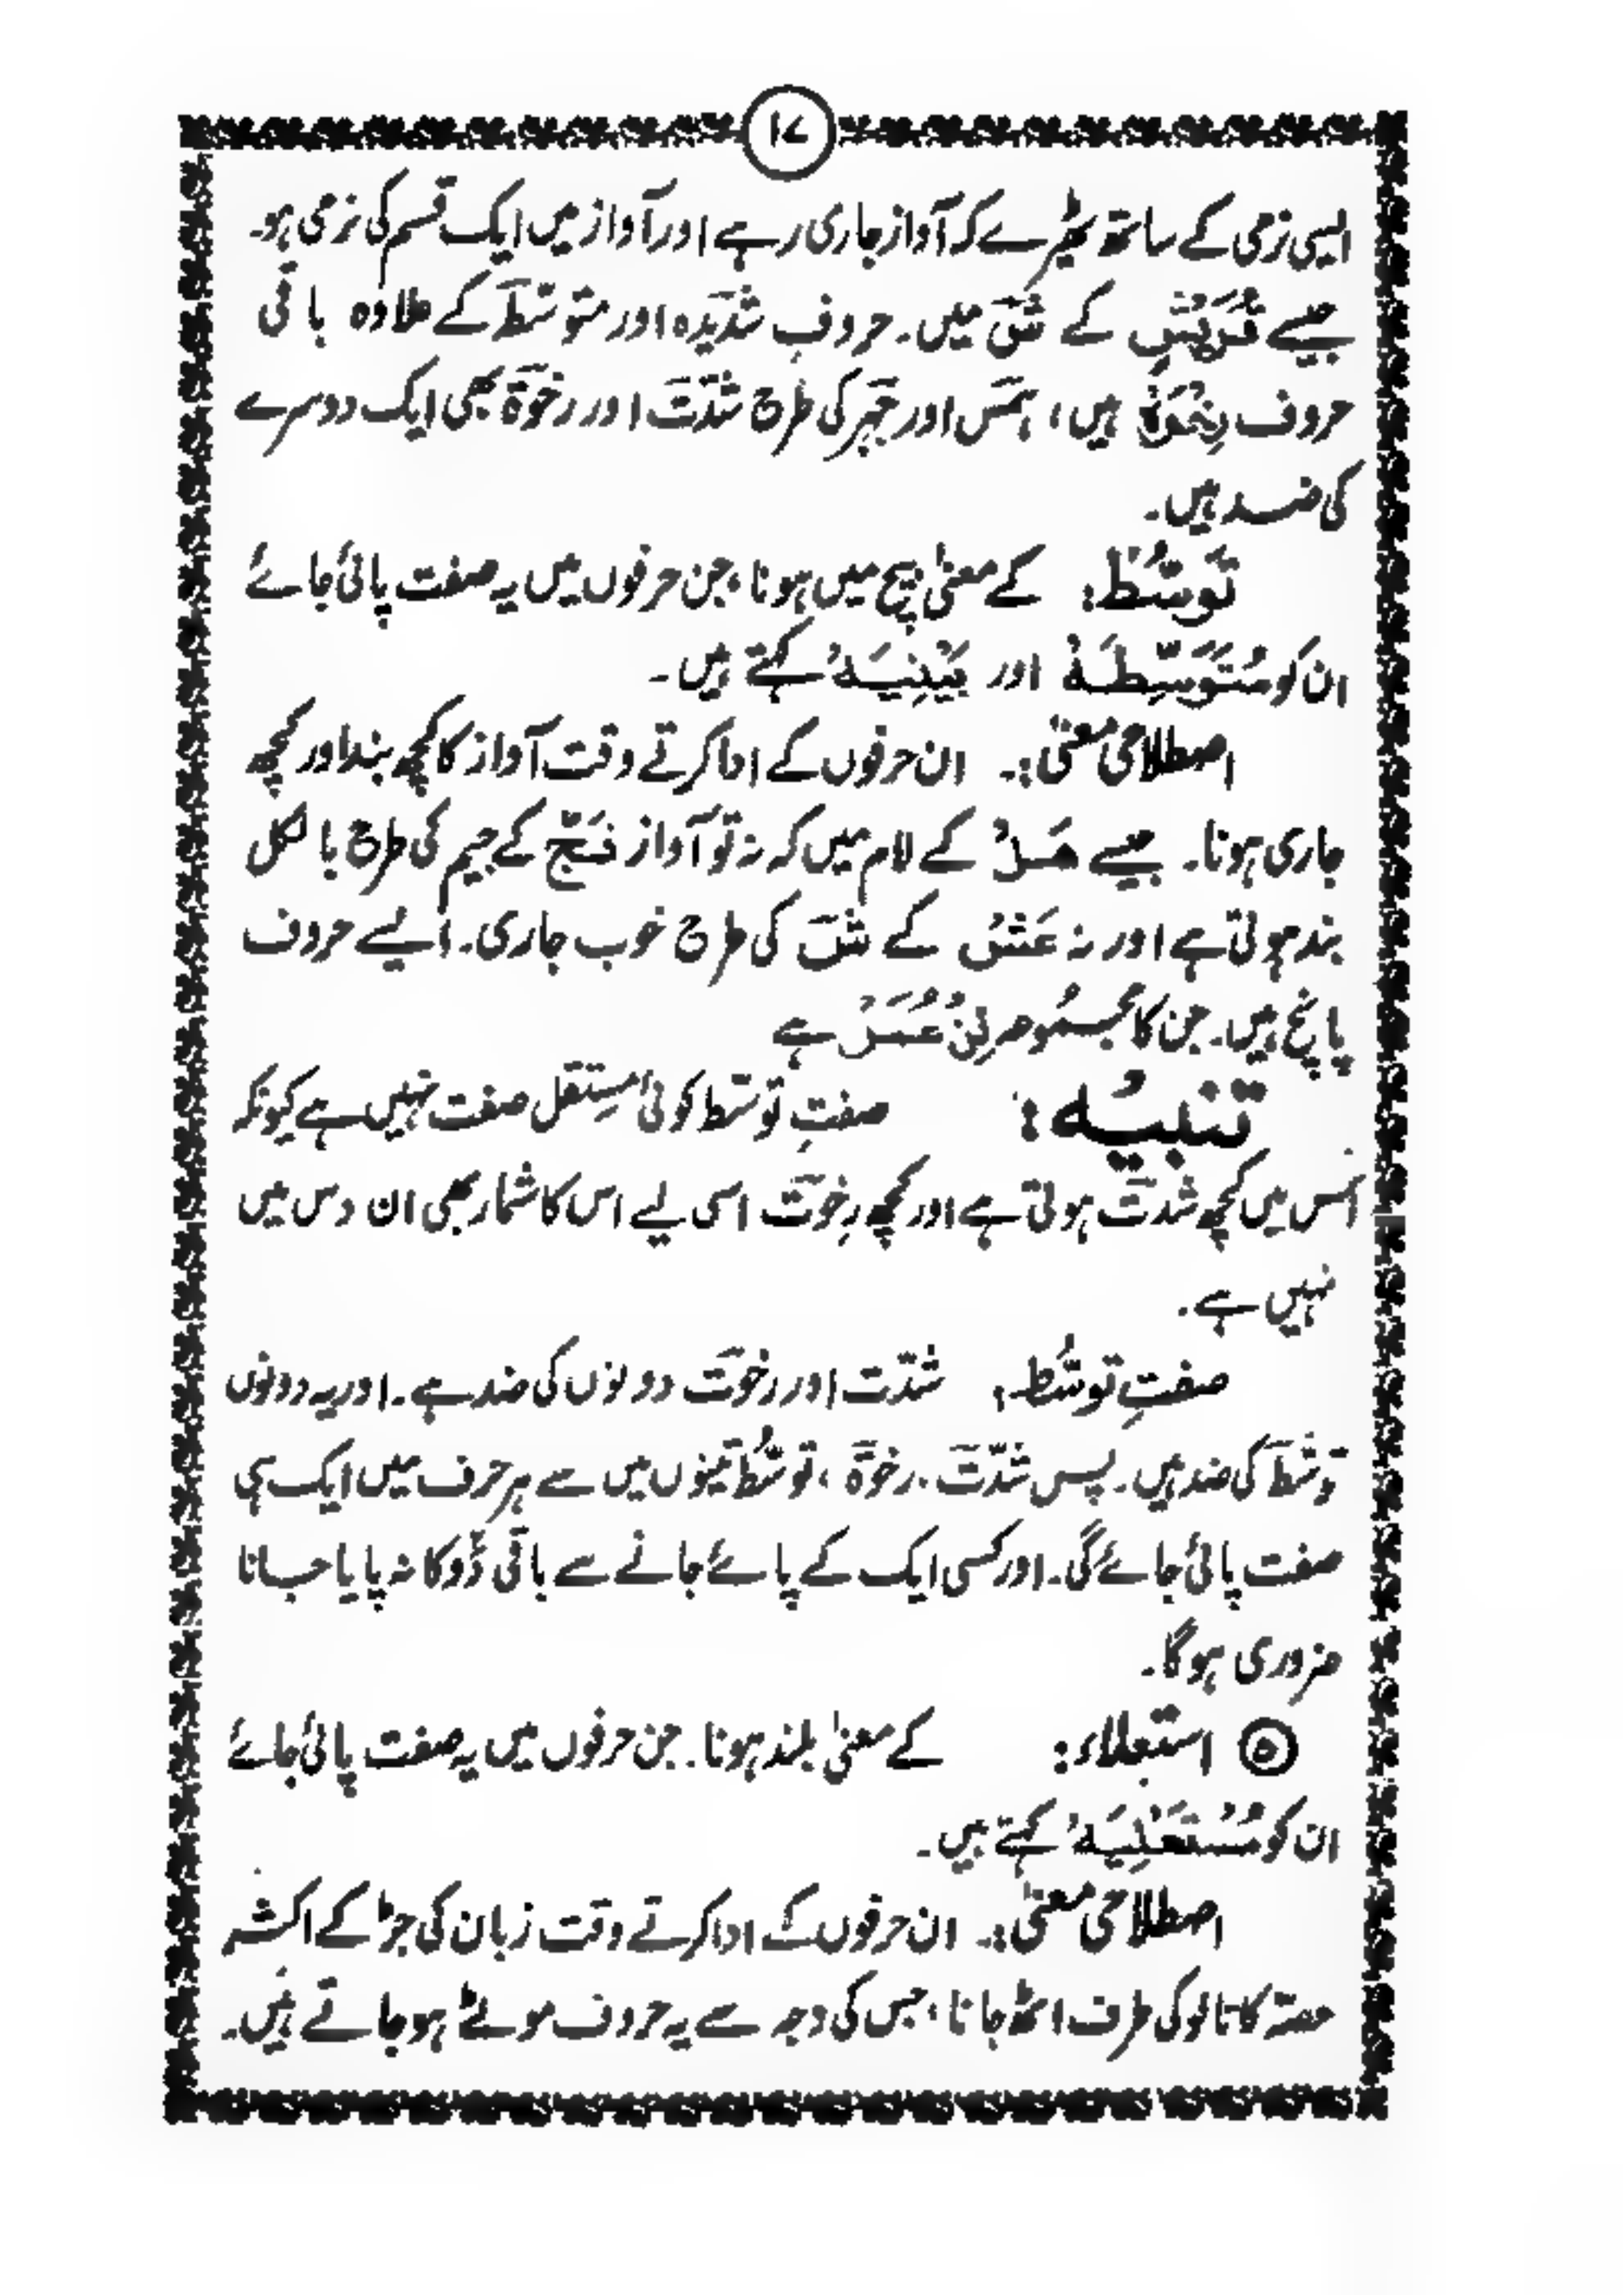 ۱۷
ایسی نرمی کے ساتھ ٹھیرے کہ آواز جاری رہے اور آواز میں ایک قسم کی نرمی ہو۔
جیسے قُرَیْشٍ کے شَ میں۔ حروفِ شدیدہ اور متوسّط کے علاوہ باقی
حروف رِخْوَۃٌ ہیں، ہمَس اور جَہر کی طرح شدّت اور رخوۃ بھی ایک دوسرے
کی ضد ہیں۔
تَوَسُّطْ: کے معنیٰ بیچ میں ہونا، جن حرفوں میں یہ صفت پائی جائے
ان کو مُتَوَسِّطَہْ اور بَیْنِیَہْ کہتے ہیں۔
اصطلاحی معنیٰ:۔ ان حرفوں کے ادا کرتے وقت آواز کا کچھ بند اور کچھ
جاری ہونا۔ جیسے ھَلْ کے لام میں کہ نہ تو آواز فَجّ کے جیم کی طرح بالکل
بند ہوتی ہے اور نہ عَشْ کے شَ کی طرح خوب جاری۔ ایسے حروف
پانچ ہیں۔ جن کا مجموعہ لِنْ عُمَرْ ہے
تنبیہ: صفتِ توسّط کوئی مستقل صفت نہیں ہے کیونکہ
اس میں کچھ شدّت ہوتی ہے اور کچھ رِخوَت اسی لیے اس کا شمار بھی ان دس میں
نہیں ہے۔
صفتِ توسُّط: شدّت اور رخوَت دونوں کی ضد ہے۔ اور یہ دونوں
توسّط کی ضد ہیں۔ پس شدّت، رخوَۃ، توسُّط تینوں میں سے ہر حرف میں ایک ہی
صفت پائی جائے گی۔ اور کسی ایک کے پائے جانے سے باقی دُو کا نہ پایا جانا
ضروری ہوگا۔
۵ استعلاء: کے معنیٰ بلند ہونا۔ جن حرفوں میں یہ صفت پائی جائے
ان کو مُسْتَعْلِیَہْ کہتے ہیں۔
اصطلاحی معنیٰ:۔ ان حرفوں کے ادا کرتے وقت زبان کی جڑ کے اکثر
حصّہ کا تالو کی طرف اٹھ جانا، جس کی وجہ سے یہ حروف موٹے ہو جاتے ہیں۔